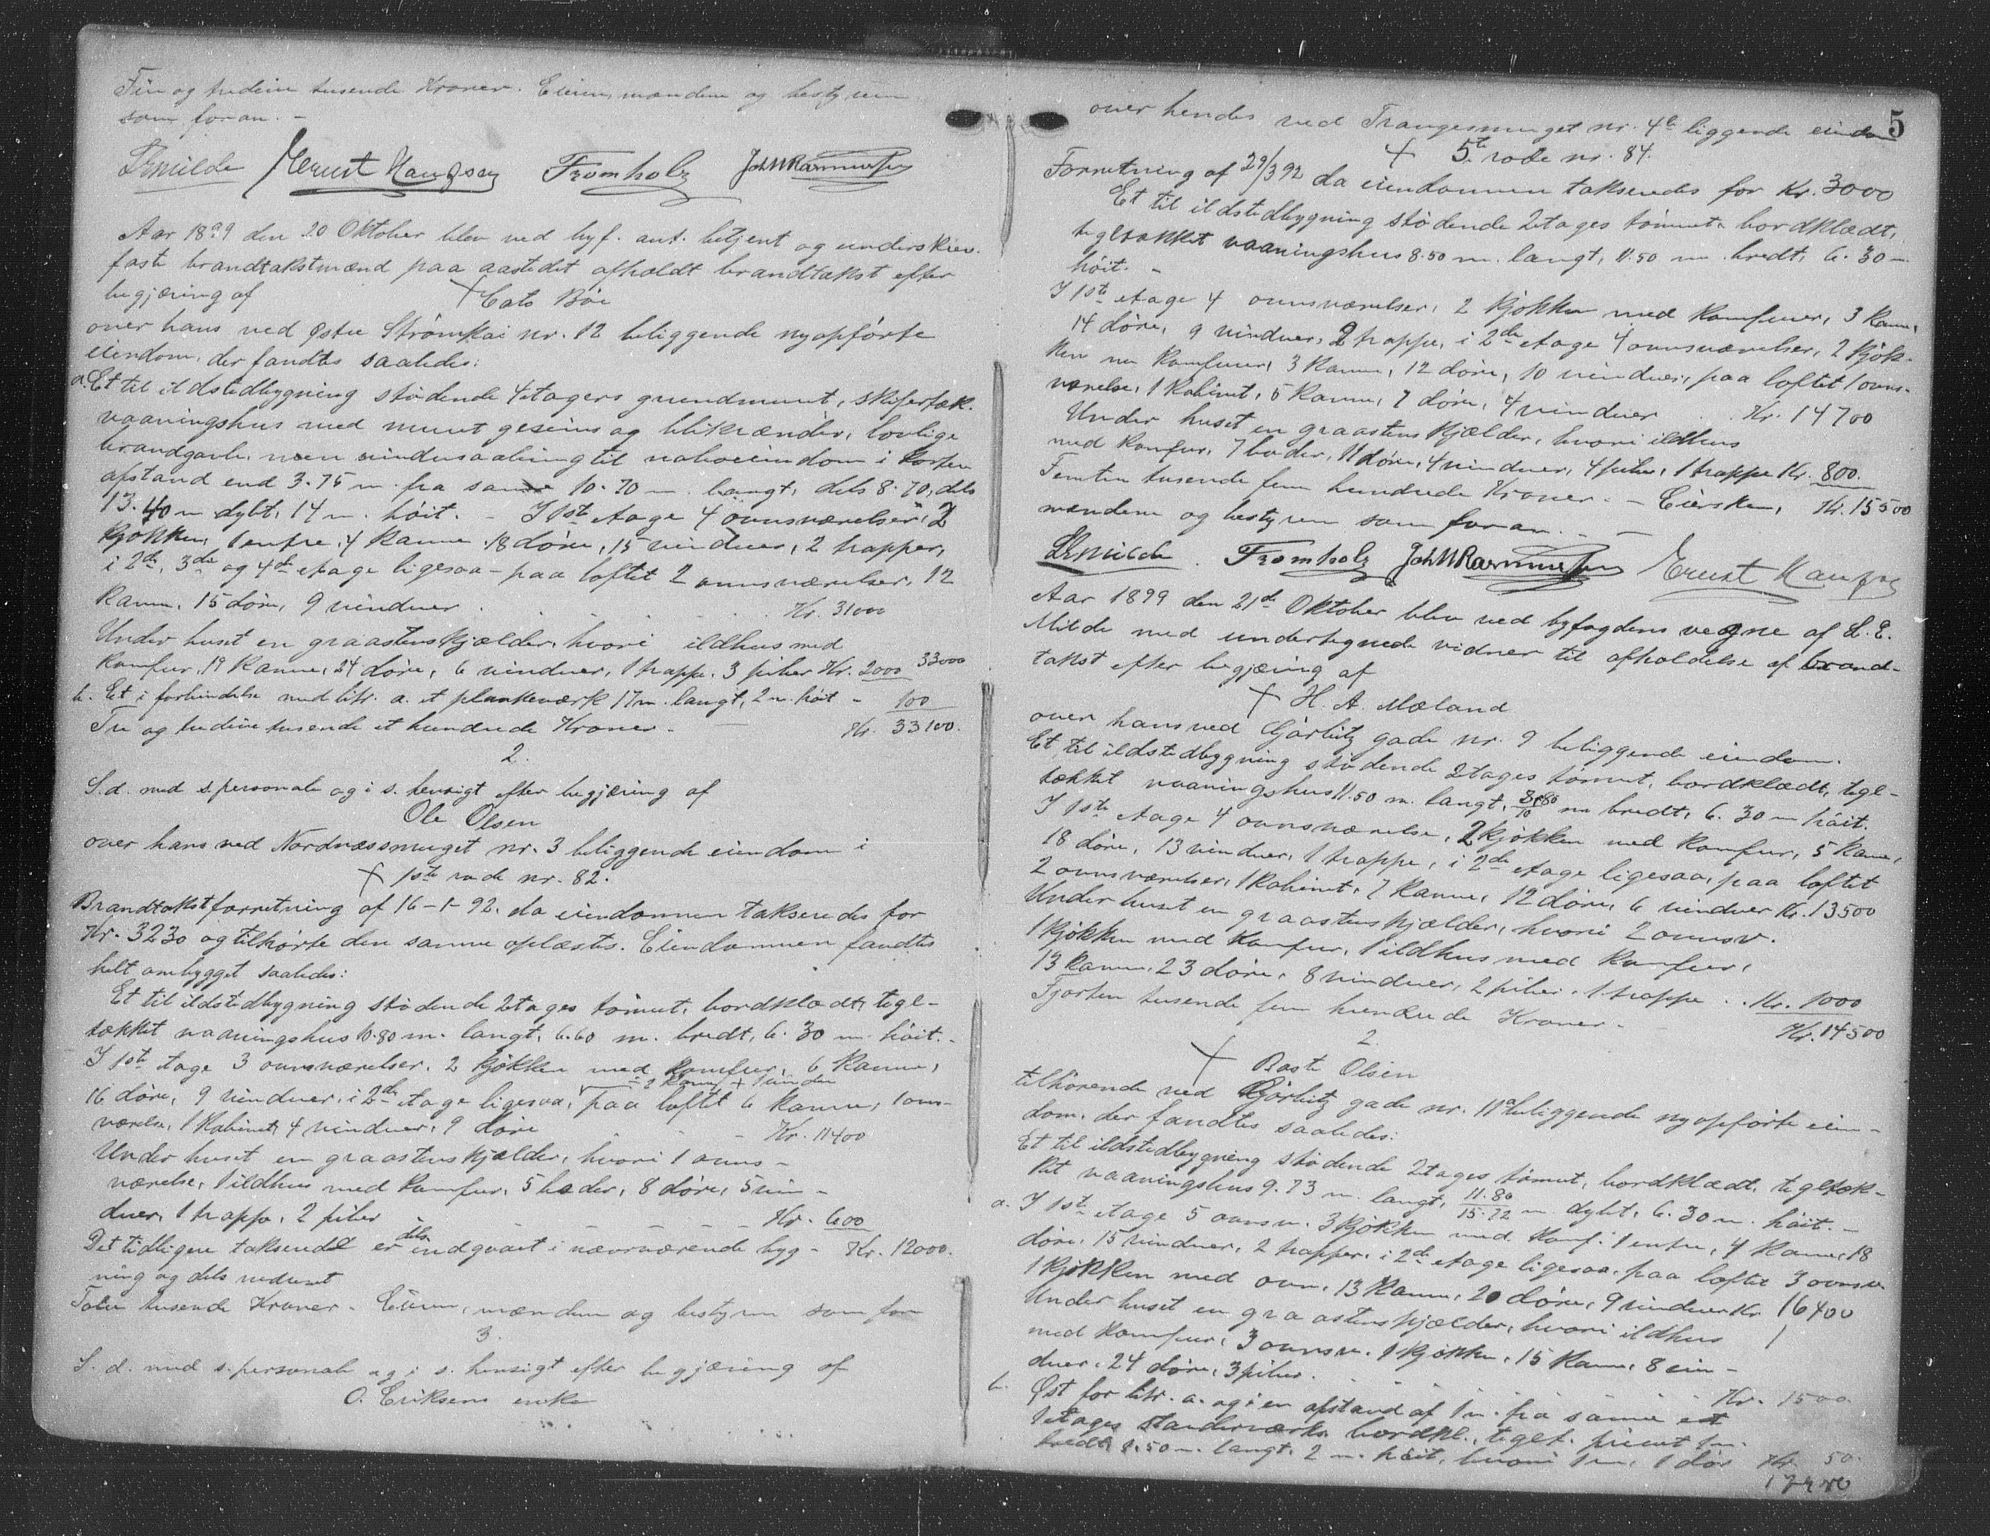 Fire og tredive tusende Kroner. Eieren, mændene og bestyren
som foran. –
LEMilde Ernst Hansson Fromholz JohMRasmussen
Aar 1899 den 20 Oktober blev ved byf. aut. betjent og underskrev.
faste brandtakstmænd paa aastedet afholdt brandtakst efter
begjæring af
Cato Bøe
over hans ved østre Strømkai nr. 12 beliggende nyopførte
eiendom, der fandtes saaledes:
a. Et til ildstedbygning stødende 4etagers grundmuret, skifertæk.
vaaningshus med muret gesims og blikrænder, lovlige
brandgavle, men vindusaabning til naboeiendom i kortere
afstand end 3.75 m. fra samme 10.70 m. langt, dels 8.70, dels
13.40 m dybt, 14 m. høit. – I 1ste etage 4 ovnsværelser, 2
kjøkken, 1 entre, 4 kamre 18 døre, 15 vinduer, 2 trapper,
i 2de, 3de og 4de etage ligesaa – paa loftet 2 ovnsværelser, 12
kamre, 15 døre, 9 vinduer . . . Kr. 31000
Under huset en graastenskjælder, hvori ildhus med
komfur, 19 kamre, 24 døre, 6 vinduer, 1 trappe, 3 piber Kr. 2000 33000
b. Et i forbindelse med litr. a. et plankeværk 17 m. langt, 2 m. høit – 100
Tre og tredive tusende et hundrede Kroner. – Kr. 33100.
2.
S.d. med s. personale og i s. hensigt efter begjæring af
Ole Olsen
over hans ved Nordnæssmuget nr. 3 beliggende eiendom i
1ste rode nr. 82.
Brandtakstforretning af 16-1-92. da eiendommen takseredes for
Kr. 3230 og tilhørte den samme oplæstes. Eiendommen fandtes
helt ombygget saaledes:
Et til ildstedbygning stødende 2etages tømret, bordklædt, tegl-
tækket vaaningshus 10.80 m. langt, 6.60 m. bredt, 6.30 m. høit. –
I 1ste etage 3 ovnsværelser, 2 kjøkken med komfur, 6 kamre,
÷ 2 kamre + 1 vindu
16 døre, 9 vinduer, i 2de etage ligesaa, paa loftet 6 kamre, 1 ovns-
værelse, 1 kabinet, 4 vinduer, 9 døre – Kr. 11400
Under huset en graastenskjælder, hvori 1 ovns-
værelse, 1 ildhus med komfur, 5 boder, 8 døre, 5 vin-
duer, 1 trappe, 2 piber – – – – Kr. 600
Det tidligere takserede er dels indgaaet i nærværende byg- Kr. 12000.
ning og dels nedrevet
Tolv tusende Kroner. Eieren, mændene og bestyren som for
3.
S. d. med s. personale og i s. hensigt efter begjæring af
O. Eriksens enke
5
over hendes ved Trangesmuget nr. 4b liggende eiendom
5te rode nr. 84.
Forretning af 29/3 92 da eiendommen takseredes for Kr. 3000
Et til ildstedbygning stødende 2etages tømret, bordklædt,
tegltækket vaaningshus 8.50 m. langt, 11.50 m. bredt, 6.30 m
høit. –
I 1ste etage 4 ovnsværelser, 2 kjøkken med komfurer, 3 kamre,
14 døre, 9 vinduer, 2 trappe, i 2de etage 4 ovnsværelser, 2 kjøk-
ken m komfurer, 3 kamre, 12 døre, 10 vinduer, paa loftet 1 ovns-
værelse, 1 kabinet, 5 kamre, 7 døre, 4 vinduer . . Kr. 14700
Under huset en graastenskjælder, hvori ildhus
med komfur, 7 boder, 11 døre, 4 vinduer, 4 piber, 1 trappe Kr. 800.
Femten tusende fem hundrede Kroner. – Eiersken, Kr. 15500
mændene og bestyren som foran. –
LEMilde. Fromholz JohMRasmussen Ernst Hansson
Aar 1899 den 21de Oktober blev ved byfogdens vegne af L. E.
Milde med undertegnede vidner til afholdelse af brand-
takst efter begjæring af
H. A. Mæland
over hans ved Gjørbitz gade nr. 9 beliggende eiendom.
Et til ildstedbygning stødende 2etages tømret, bordklædt, tegl-
tækket vaaningshus 11.50 m. langt, m bredt, 6.30 m høit.
I 1ste etage 4 ovnsværelse, 2 kjøkken med komfur, 5 kamre,
18 døre, 13 vinduer, 1 trappe, i 2de etage ligesaa, paa loftet
2 ovnsværelser, 1 kabinet, 7 kamre, 12 døre, 6 vinduer Kr. 13500
Under huset en graastenskjælder, hvori 2 ovnsv.
1 kjøkken med komfur, 1 ildhus med komfur,
13 kamre, 23 døre, 8 vinduer, 2 piber, 1 trappe . . Kr. 1000
Fjorten tusende fem hundrede Kroner. – Kr. 14500
2.
Bast Olsen
tilhørende ved Gjørbitz gade nr. 11a beliggende nyopførte eien-
dom, der fandtes saaledes:
Et til ildstedbygning stødende 2etages tømret, bordklædt, tegltæk-
ket vaaningshus 9.73 m. langt, 11.80/15.72 m dybt, 6.30 m. høit. –
a. I 1ste etage 5 ovnsv. 3 kjøkken med komf. 1 entre, 4 kamre, 18
døre, 15 vinduer, 2 trapper, i 2de etage ligesaa, paa loftet 3 ovnsv.
1 kjøkken med ovn, 13 kamre, 20 døre, 9 vinduer Kr 16400
Under huset en graastenskjælder, hvori ildhus
med komfur, 3 ovnsv. 1 kjøkken, 15 kamre, 8 vin-
duer, 24 døre, 3 piber. . . . Kr. 1500
b. Øst for litr. a. og i en afstand af 1 m. fra samme et
1etages standerværks bordkl., teglt. privet 1 m.
bredt 1.50 m. langt, 2 m. høit, hvori 1 rum, 1 dør Kr. 50.